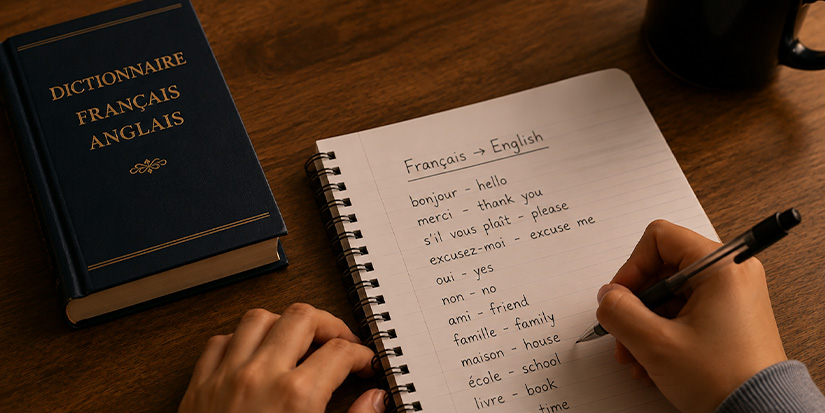 DICTIONNAIRE
FRANÇAIS
ANGLAIS
Français → English
bonjour - hello
merci - thank you
s'il vous plaît - please
excusez-moi - excuse me
oui - yes
non - no
ami - friend
famille - family
maison - house
école - school
livre - book
time